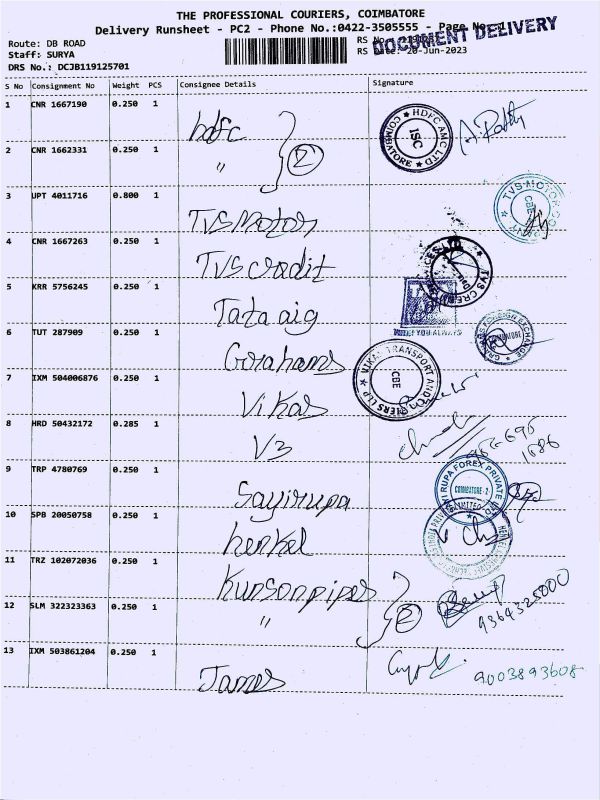 THE PROFESSIONAL COURIERS, COIMBATORE
Delivery Runsheet - PC2 - Phone No.:0422-3505555 - Page No. 1
DOCUMENT DELIVERY
Route: DB ROAD
Staff: SURYA RS Date: 20-Jun-2023
DRS No.: DCJB119125701
S No Consignment No Weight PCS Consignee Details Signature
1 CNR 1667190 0.250 1 hdfc
HDFC AMC LTD ISC COIMBATORE
2 CNR 1662331 0.250 1 " 2
3 UPT 4011716 0.800 1 TVS Motor
TVS MOTOR COMPANY CBE
4 CNR 1667263 0.250 1 TVS credit
5 KRR 5756245 0.250 1 Tata aig
WITH YOU ALWAYS
6 TUT 287909 0.250 1 Gorahams
7 IXM 504006876 0.250 1 Vikas
VIKAS TRANSPORT AND CBE
8 HRD 50432172 0.285 1 V3
9 TRP 4780769 0.250 1 Sayirupa
RUPA FOREX PRIVATE LIMITED COIMBATORE - 2
10 SPB 20050758 0.250 1 henkel
11 TRZ 102072036 0.250 1 Kunsonpipes
12 SLM 322323363 0.250 1 " 2 9364325000
13 IXM 503861204 0.250 1 James 9003893608